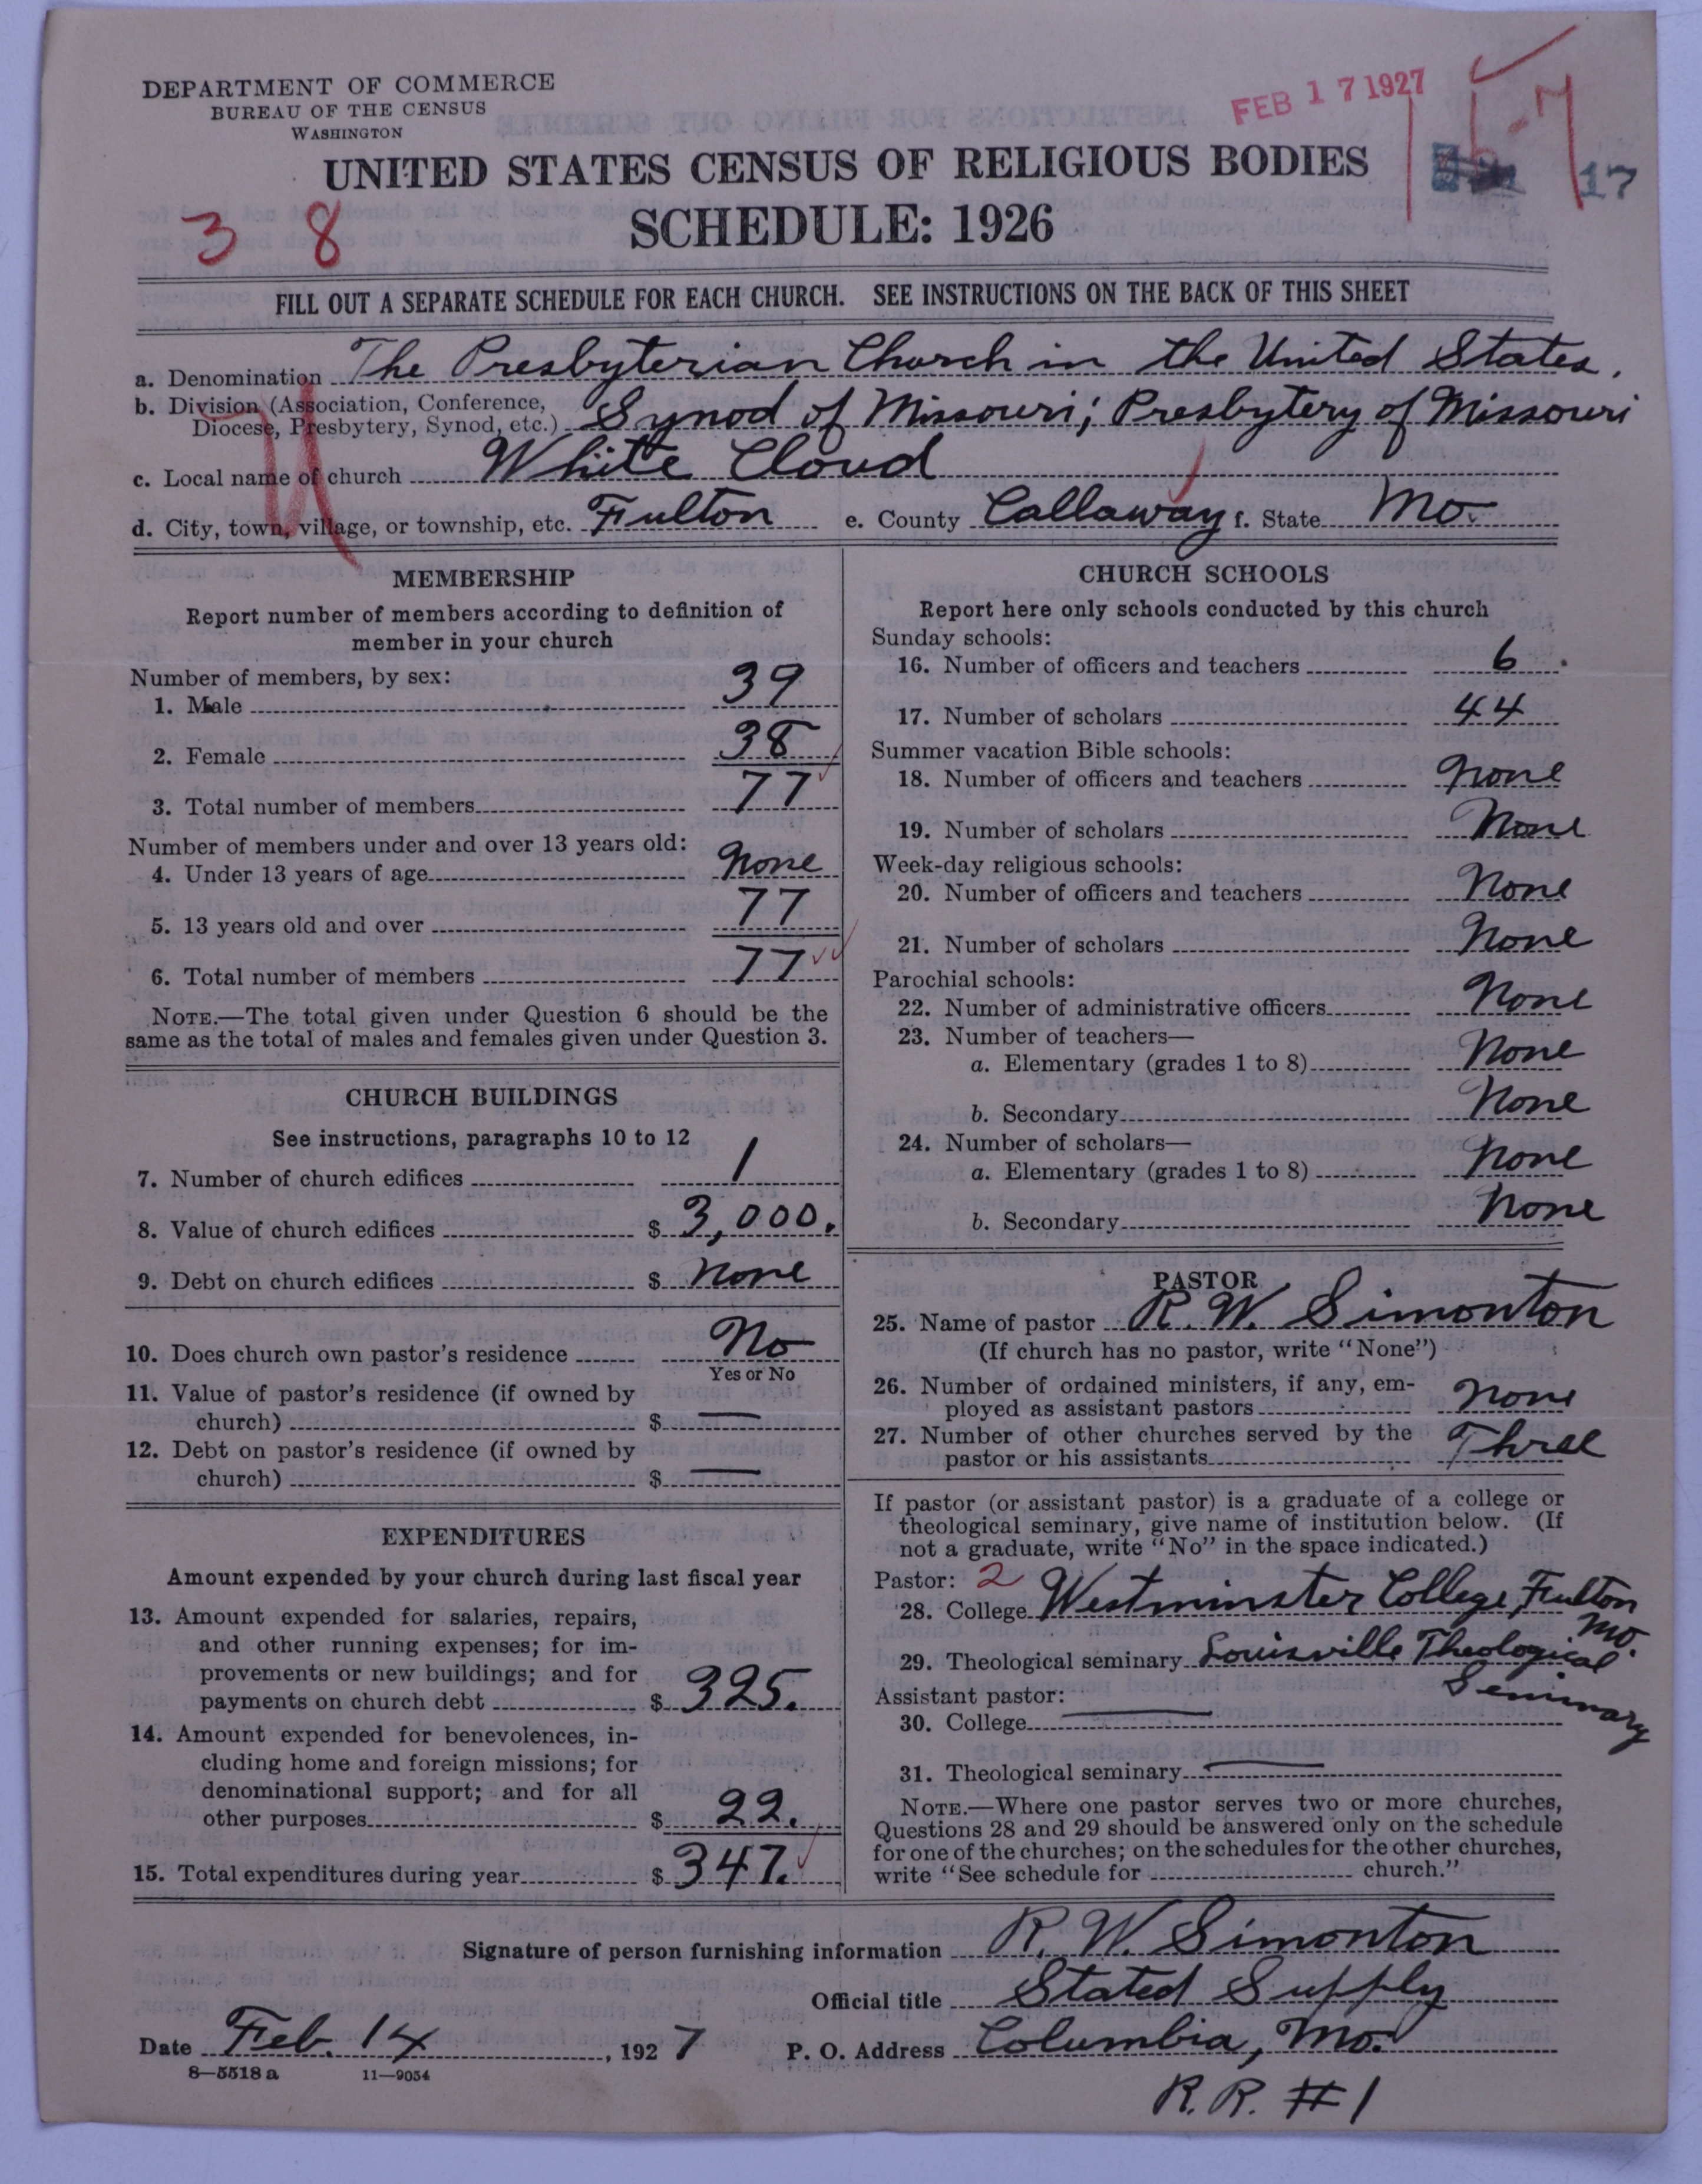 DEPARTMENT OF COMMERCE
BUREAU OF THE CENSUS
WASHINGTON
FEB 17 1927
17
UNITED STATES CENSUS OF RELIGIOUS BODIES
3 8
SCHEDULE: 1926
FILL OUT A SEPARATE SCHEDULE FOR EACH CHURCH. SEE INSTRUCTIONS ON THE BACK OF THIS SHEET
a. Denomination The Presbyterian Church in the United States.
b. Division (Association, Conference,
Diocese, Presbytery, Synod, etc.) Synod of Missouri; Presbytery of Missouri
c. Local name of church White Cloud
d. City, town, village, or township, etc. Fulton e. County Callaway f. State Mo.
MEMBERSHIP
Report number of members according to definition of
member in your church
Number of members, by sex:
1. Male 39
2. Female 38
3. Total number of members 77
Number of members under and over 13 years old:
4. Under 13 years of age None
5. 13 years old and over 77
6. Total number of members 77
NOTE.—The total given under Question 6 should be the
same as the total of males and females given under Question 3.
CHURCH BUILDINGS
See instructions, paragraphs 10 to 12
7. Number of church edifices 1
8. Value of church edifices $ 3,000.
9. Debt on church edifices $ None
10. Does church own pastor's residence No
Yes or No
11. Value of pastor's residence (if owned by
church) $ —
12. Debt on pastor's residence (if owned by
church) $ —
EXPENDITURES
Amount expended by your church during last fiscal year
13. Amount expended for salaries, repairs,
and other running expenses; for im-
provements or new buildings; and for
payments on church debt $ 325.
14. Amount expended for benevolences, in-
cluding home and foreign missions; for
denominational support; and for all
other purposes $ 22.
15. Total expenditures during year $ 347.
CHURCH SCHOOLS
Report here only schools conducted by this church
Sunday schools:
16. Number of officers and teachers 6
17. Number of scholars 44
Summer vacation Bible schools:
18. Number of officers and teachers None
19. Number of scholars None
Week-day religious schools:
20. Number of officers and teachers None
21. Number of scholars None
Parochial schools:
22. Number of administrative officers None
23. Number of teachers—
a. Elementary (grades 1 to 8) None
b. Secondary None
24. Number of scholars—
a. Elementary (grades 1 to 8) None
b. Secondary None
PASTOR
25. Name of pastor R. W. Simonton
(If church has no pastor, write "None")
26. Number of ordained ministers, if any, em-
ployed as assistant pastors None
27. Number of other churches served by the
pastor or his assistants Three
If pastor (or assistant pastor) is a graduate of a college or
theological seminary, give name of institution below. (If
not a graduate, write "No" in the space indicated.)
Pastor: 2
28. College Westminster College, Fulton
Mo.
29. Theological seminary Louisville Theological
Seminary
Assistant pastor:
30. College —
31. Theological seminary —
NOTE.—Where one pastor serves two or more churches,
Questions 28 and 29 should be answered only on the schedule
for one of the churches; on the schedules for the other churches,
write "See schedule for church."
Signature of person furnishing information R. W. Simonton
Official title Stated Supply
Date Feb. 14, 1927 P. O. Address Columbia, Mo.
8—5518 a 11—9054
R.R. #1